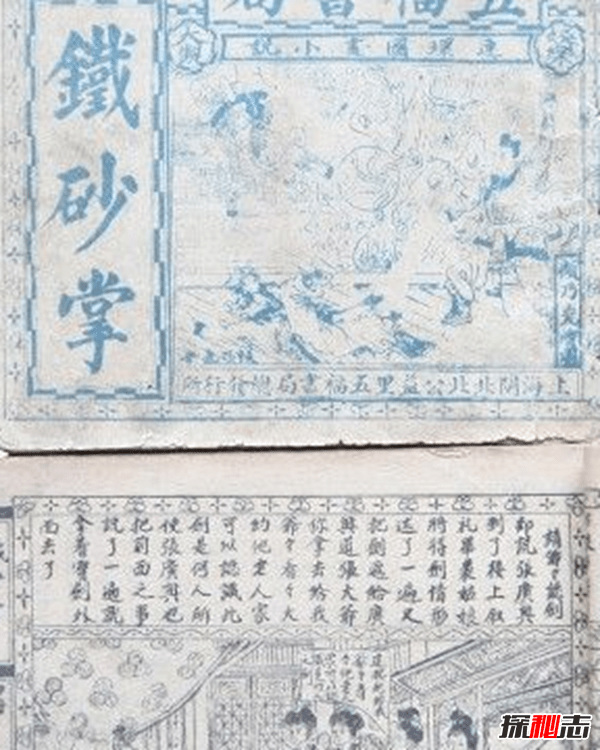 五福書局
連環圖畫小說
鐵砂掌
上海閘北北公益里五福書局總發行所
請爺爺認劍
却說張廣興
到了後上叙
礼畢裴姑娘
將得劍情形
述了一遍又
把劍遞給廣
興道張大爺
你拿去給我
爷々看々大
約他老人家
可以認識此
劍是何人所
使張廣興也
把前面之事
說了一遍就
拿着寶劍外
面去了
探秘志